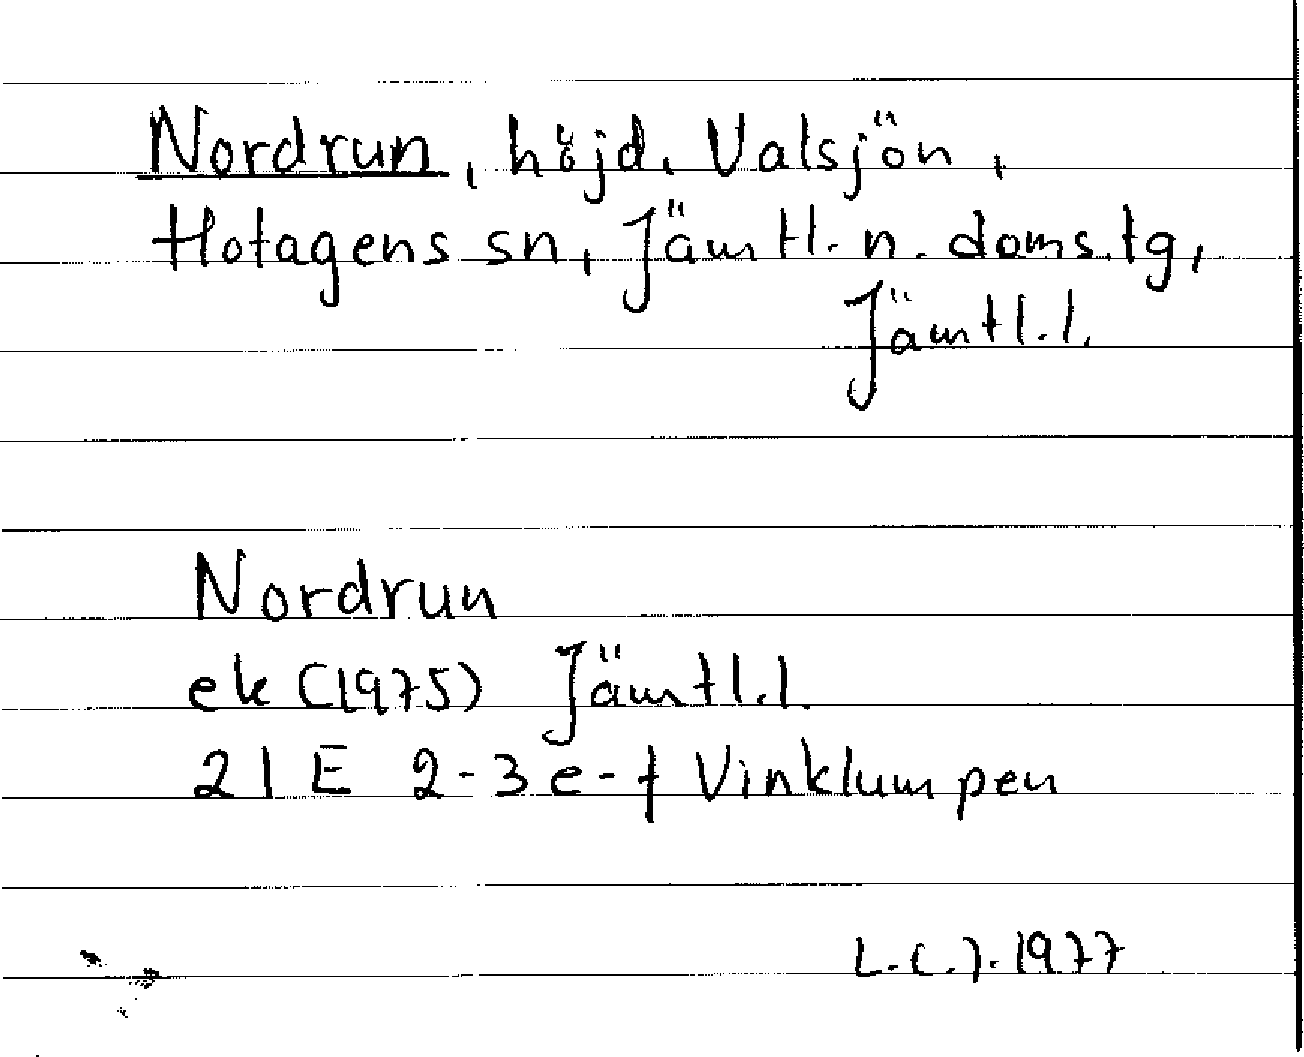 Nordrun, höjd. Valsjön,
Hotagens sn, Jämtl. n. doms.tg,
Jämtl.l.
Nordrun
ek (1975) Jämtl.l.
21 E 2-3 e-f Vinklumpen
L.C.J. 1977